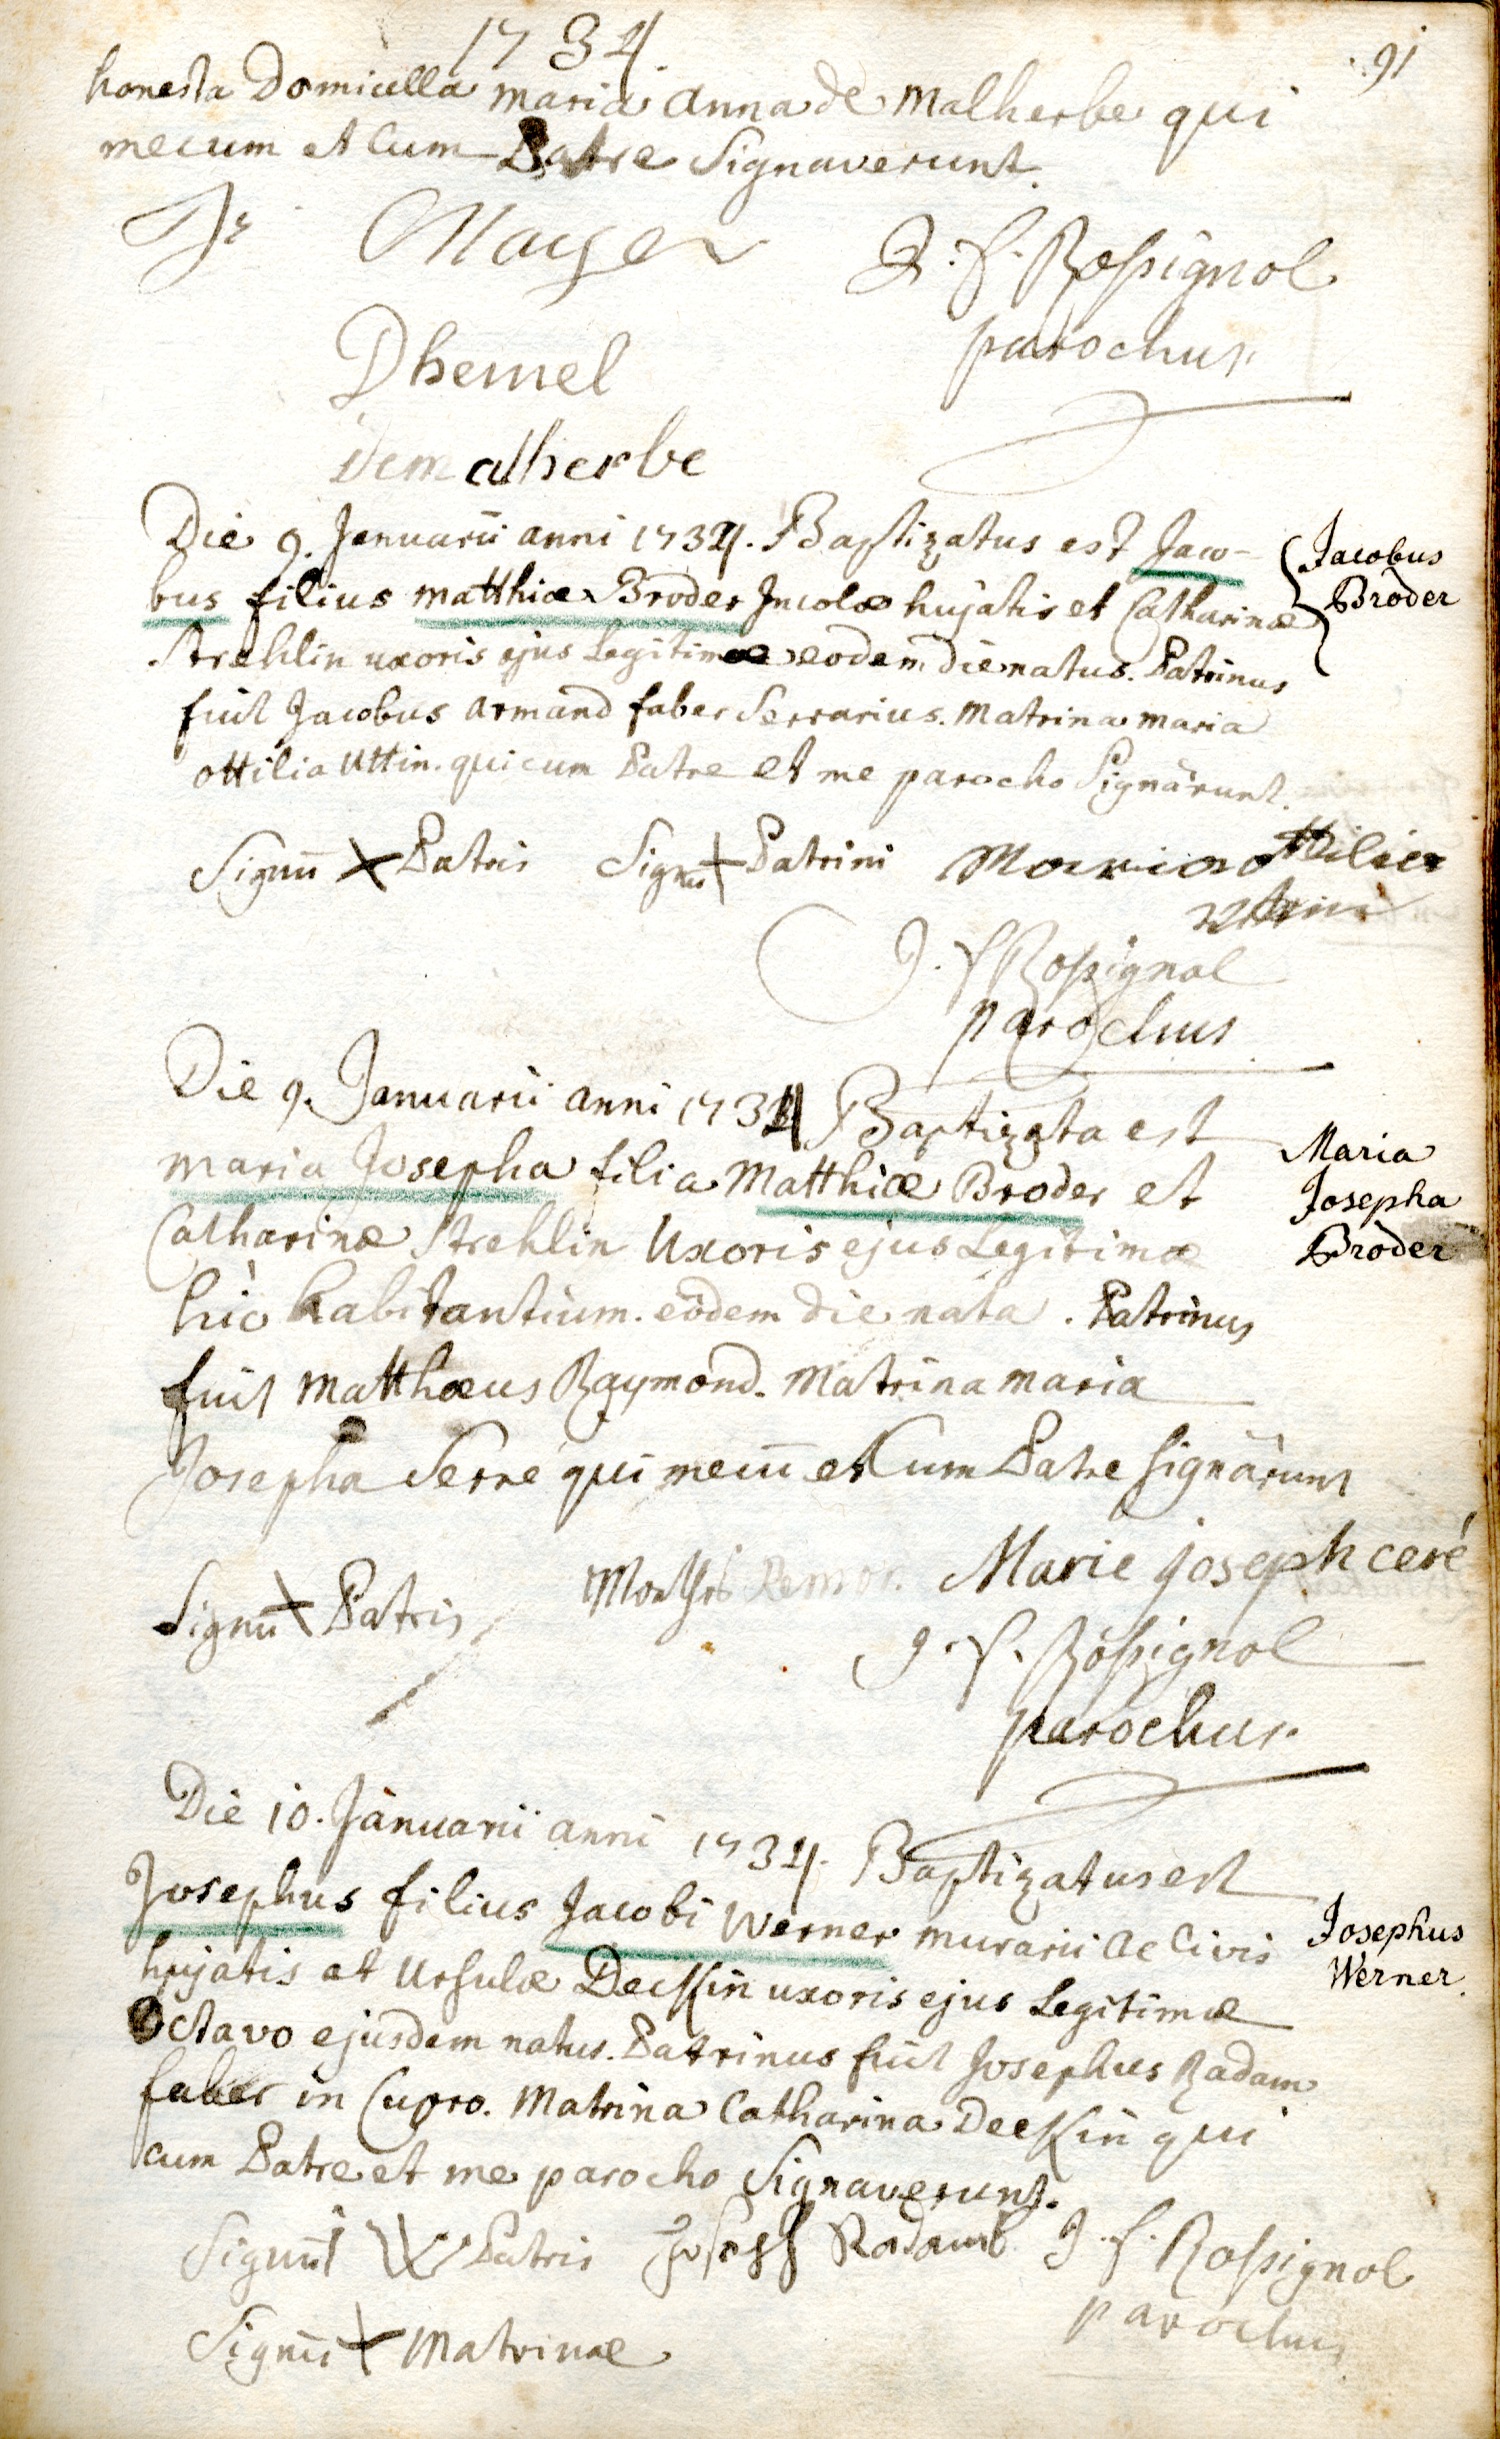 1734.
91
honesta Domicella maria anna de Malherbe qui
mecum et Cum Patre Signaverunt.
Mayer
J. f. Rossignol
parochus.
Dhemel
demalherbe
Die 9. Januarii anni 1734. Baptizatus est Jaco-
bus filius matthiæ Broder Incolæ hujatis et Catharinæ
Strehlin uxoris ejus Legitimæ eodem die natus. Patrinus
fuit Jacobus armand faber Serrarius. Matrina maria
ottilia Uttin. qui cum Patre et me parocho Signârunt.
Jacobus
Broder
Signū X Patris Signū + Patrini Maria ottilia
J. f Rossignol
parochus
Die 9. Januarii anni 1734 Baptizata est
maria Josepha filia Matthiæ Broder et
Catharinæ Strehlin Uxoris ejus Legitimæ
hic habitantium. eodem die nata. Patrinus
fuit matthæus Raymond. Matrina maria
Josepha Serre qui mecū et Cum Patre signârunt
Maria
Josepha
Broder
Signū + Patris Marie joseph ceré
J. f. Rossignol
parochus.
Die 10. Januarii anni 1734. Baptizatus est
Josephus filius Jacobi Werner murarii ac Civis
hujatis et Ursulæ Deckin uxoris ejus Legitimæ
Octavo ejusdem natus. Patrinus fuit Josephus Radam
faber in Cupro. Matrina Catharina Deckin qui
cum Patre et me parocho Signaverunt.
Josephus
Werner.
Signū W Patris Joseph Radam J. f. Rossignol
parochus
Signū + Matrinæ